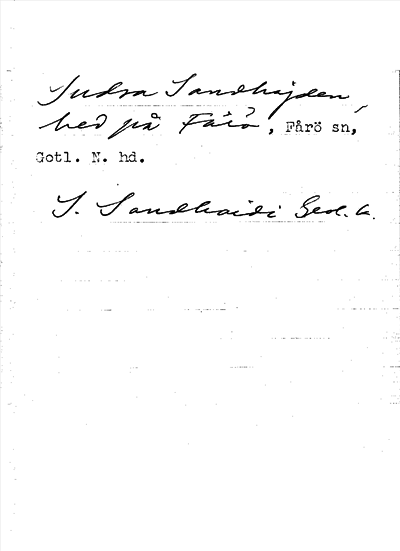 Sudra Sandhajden,
hed på Fårö, Fårö sn,
Gotl. N. hd.
S. Sandhaidi Geol. k.